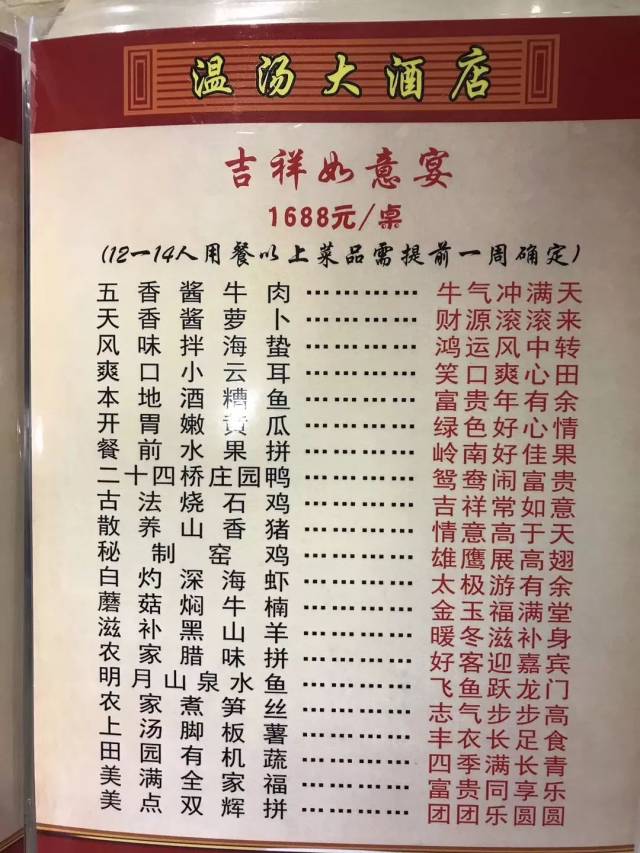 温汤大酒店
吉祥如意宴
1688元/桌
(12一14人用餐以上菜品需提前一周确定)
五香酱牛肉………………牛气冲满天
天香酱萝卜………………财源滚滚来
风味拌海蛰………………鸿运风中转
爽口小云耳………………笑口爽心田
本地酒糟鱼………………富贵年有余
开胃嫩黄瓜………………绿色好心情
餐前水果拼………………岭南好佳果
二十四桥庄园鸭………………鸳鸯闹富贵
古法烧石鸡………………吉祥常如意
散养山香猪………………情意高于天
秘制窑鸡………………雄鹰展高翅
白灼深海虾………………太极游有余
蘑菇焖牛楠………………金玉福满堂
滋补黑山羊………………暖冬滋补身
农家腊味拼………………好客迎嘉宾
明月山泉水鱼………………飞鱼跃龙门
农家煮笋丝………………志气步步高
上汤脚板薯………………丰衣长足食
田园有机蔬………………四季满长青
美满全家福………………富贵同享乐
美点双辉拼………………团团乐圆圆